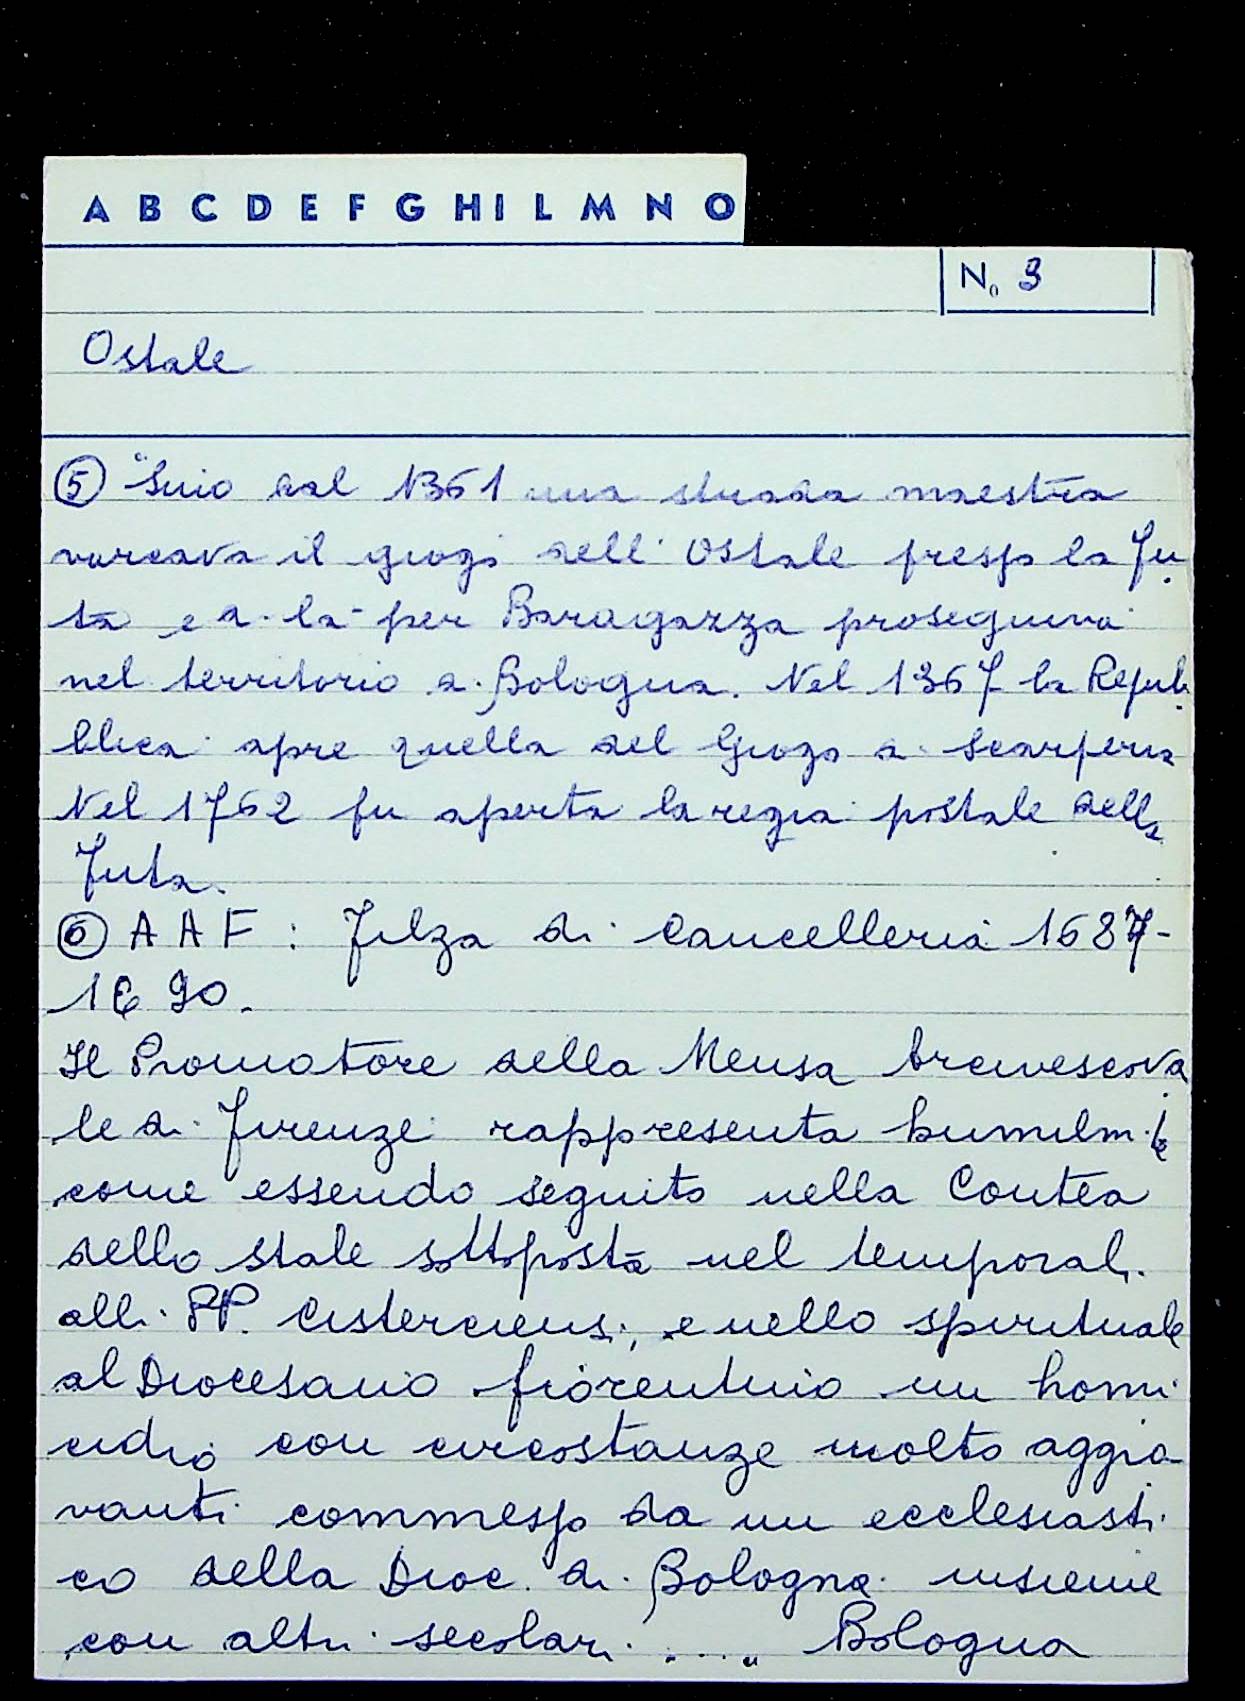 A B C D E F G H I L M N O
No 3
Ostale
⑤ "Sino dal 1361 una strada maestra
varcava il giogo dell'Ostale presso la Fu
ta e di là per Baragazza proseguiva
nel territorio di Bologna. Nel 1367 la Repub
blica apre quella del Giogo di Scarperia
Nel 1762 fu aperta la regia postale della
Futa.
⑥ A A F : Filza di Cancelleria 1687-
1690.
Il Promotore della Mensa Arcivescova
le di Firenze rappresenta humilm.te
come essendo seguito nella Contea
dello Stale sottoposta nel temporal.
alli PP. Cisterciensi, e nello spirituale
al Diocesano fiorentino un homi
cidio con circostanze molto aggra-
vanti commesso da un ecclesiasti
co della Dioc. di Bologna insieme
con altri secolari ..... Bologna